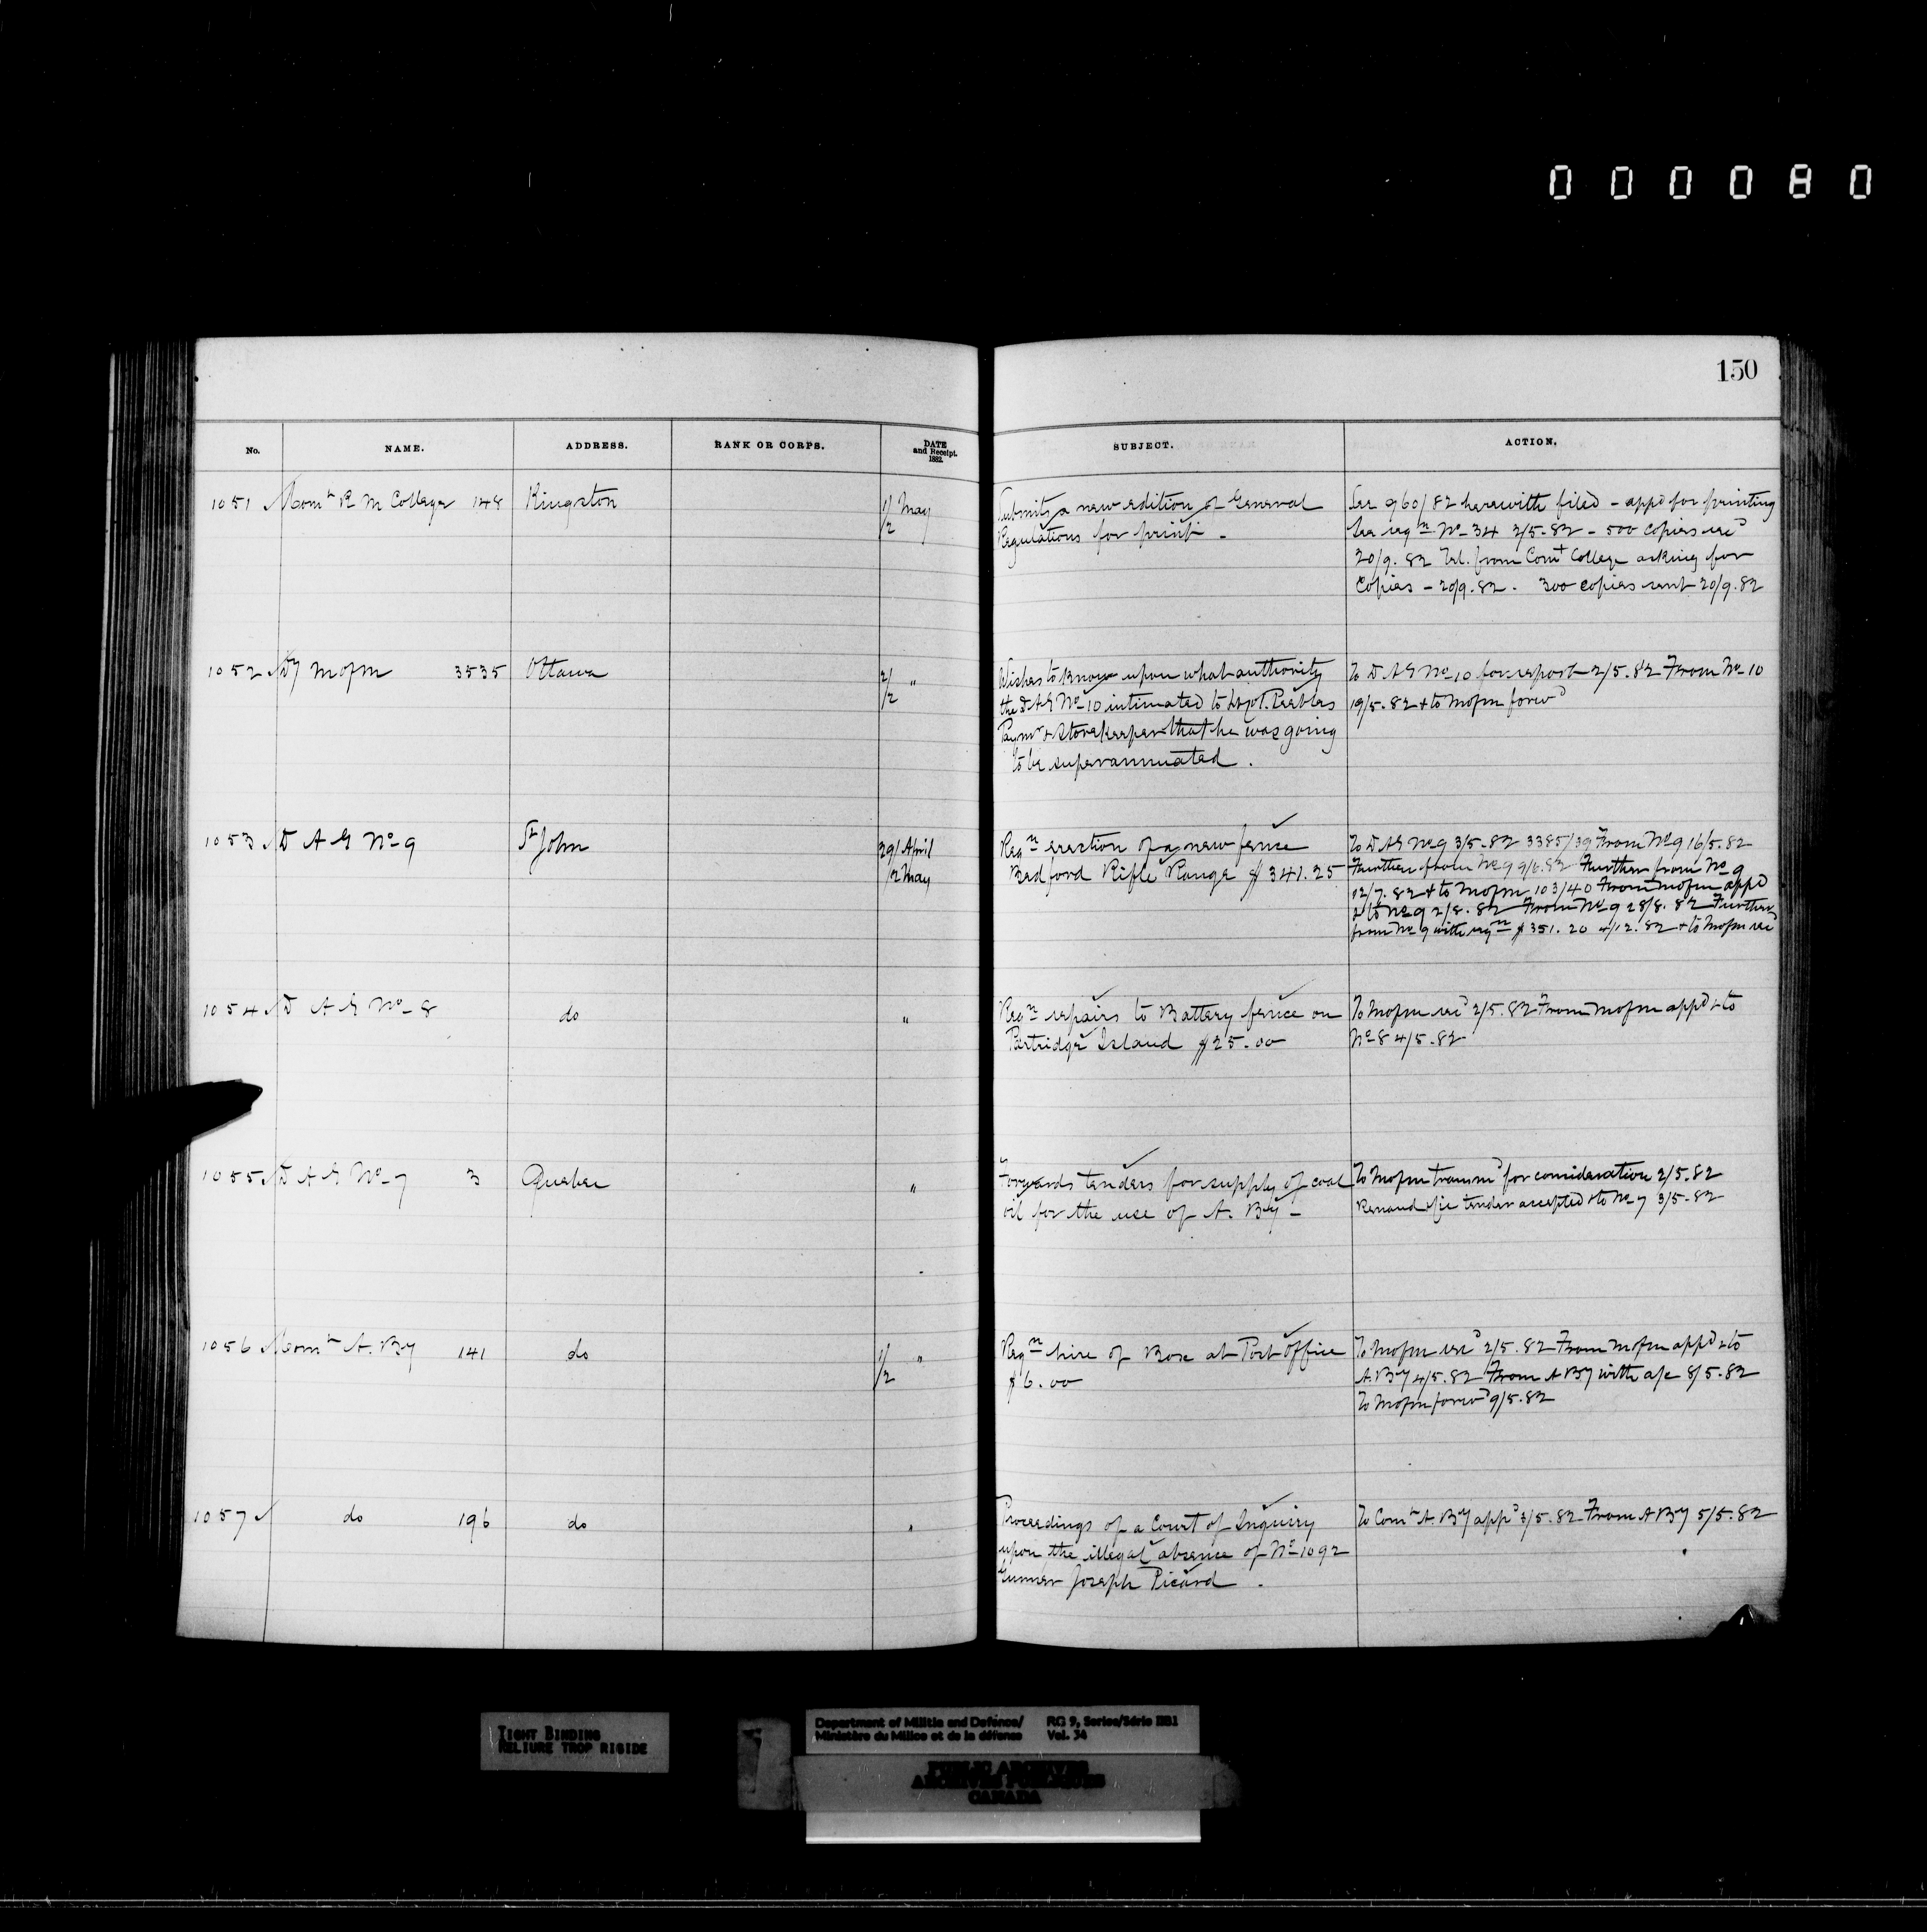 000080
150
No. NAME. ADDRESS. RANK OR CORPS. DATE and Receipt. 1882. SUBJECT. ACTION.
1051 Comt R M College 148 Kingston 1/2 May
Submits a new edition of General
Regulations for print -
See 960/82 herewith filed - appd for printing
See reqn No 34 2/5.82 - 500 copies recd
20/9.82 Tel. from Comt College asking for
Copies - 20/9.82. 300 copies sent 20/9.82
1052 Dy Mofm 3535 Ottawa 2/2 "
Wishes to know upon what authority
the DAG No 10 intimated to Lt Col. Peebles
Paymr & Storekeeper that he was going
to be superannuated.
To DAG No 10 for report 2/5.82 From No 10
19/5.82 & to Mofm forwd
1053 D A G No 9 St John 29/ April /2 May
Reqn erection of a new fence
Bedford Rifle Range $341.25
To DAG No 9 3/5.82 3385/39 From No 9 16/5.82
Further from No 9 9/6.82 Further from No 9
12/7.82 & to Mofm 103/40 From Mofm appd
& to No 9 2/8.82 From No 9 28/8.82 Further
from No 9 with reqn $351.20 4/12.82 & to Mofm rec
1054 D A G No 8 do "
Reqn repairs to Battery fence on
Partridge Island $25.00
To Mofm recd 2/5.82 From Mofm appd & to
No 8 4/5.82
1055 D A G No 7 3 Quebec "
Forwards tenders for supply of coal
oil for the use of A. By -
To Mofm transmd for consideration 2/5.82
Renaud &c tender accepted & to No 7 3/5.82
1056 Comt A. By 141 do 1/2 "
Reqn hire of Box at Post Office
$6.00
To Mofm recd 2/5.82 From Mofm appd & to
A. By 4/5.82 From A By with a/c 8/5.82
To Mofm forwd 9/5.82
1057 do 196 do "
Proceedings of a Court of Inquiry
upon the illegal absence of No 1092
Gunner Joseph Picard.
To Comt A. By appd 3/5.82 From A By 5/5.82
TIGHT BINDING
RELIURE TROP RIGIDE
Department of Militia and Defence/ RG 9, Series/Série IIB1
Ministère du Milice et de la défense Vol. 34
PUBLIC ARCHIVES
ARCHIVES PUBLIQUES
CANADA